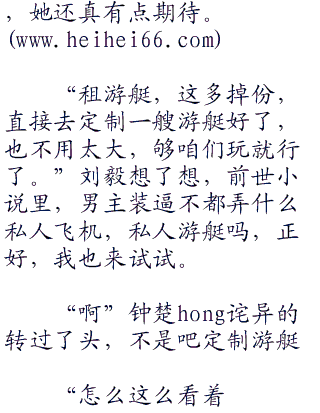 ，她还真有点期待。
(www.heihei66.com)
“租游艇，这多掉份，
直接去定制一艘游艇好了，
也不用太大，够咱们玩就行
了。”刘毅想了想，前世小
说里，男主装逼不都弄什么
私人飞机，私人游艇吗，正
好，我也来试试。
“啊”钟楚hong诧异的
转过了头，不是吧定制游艇
“怎么这么看着